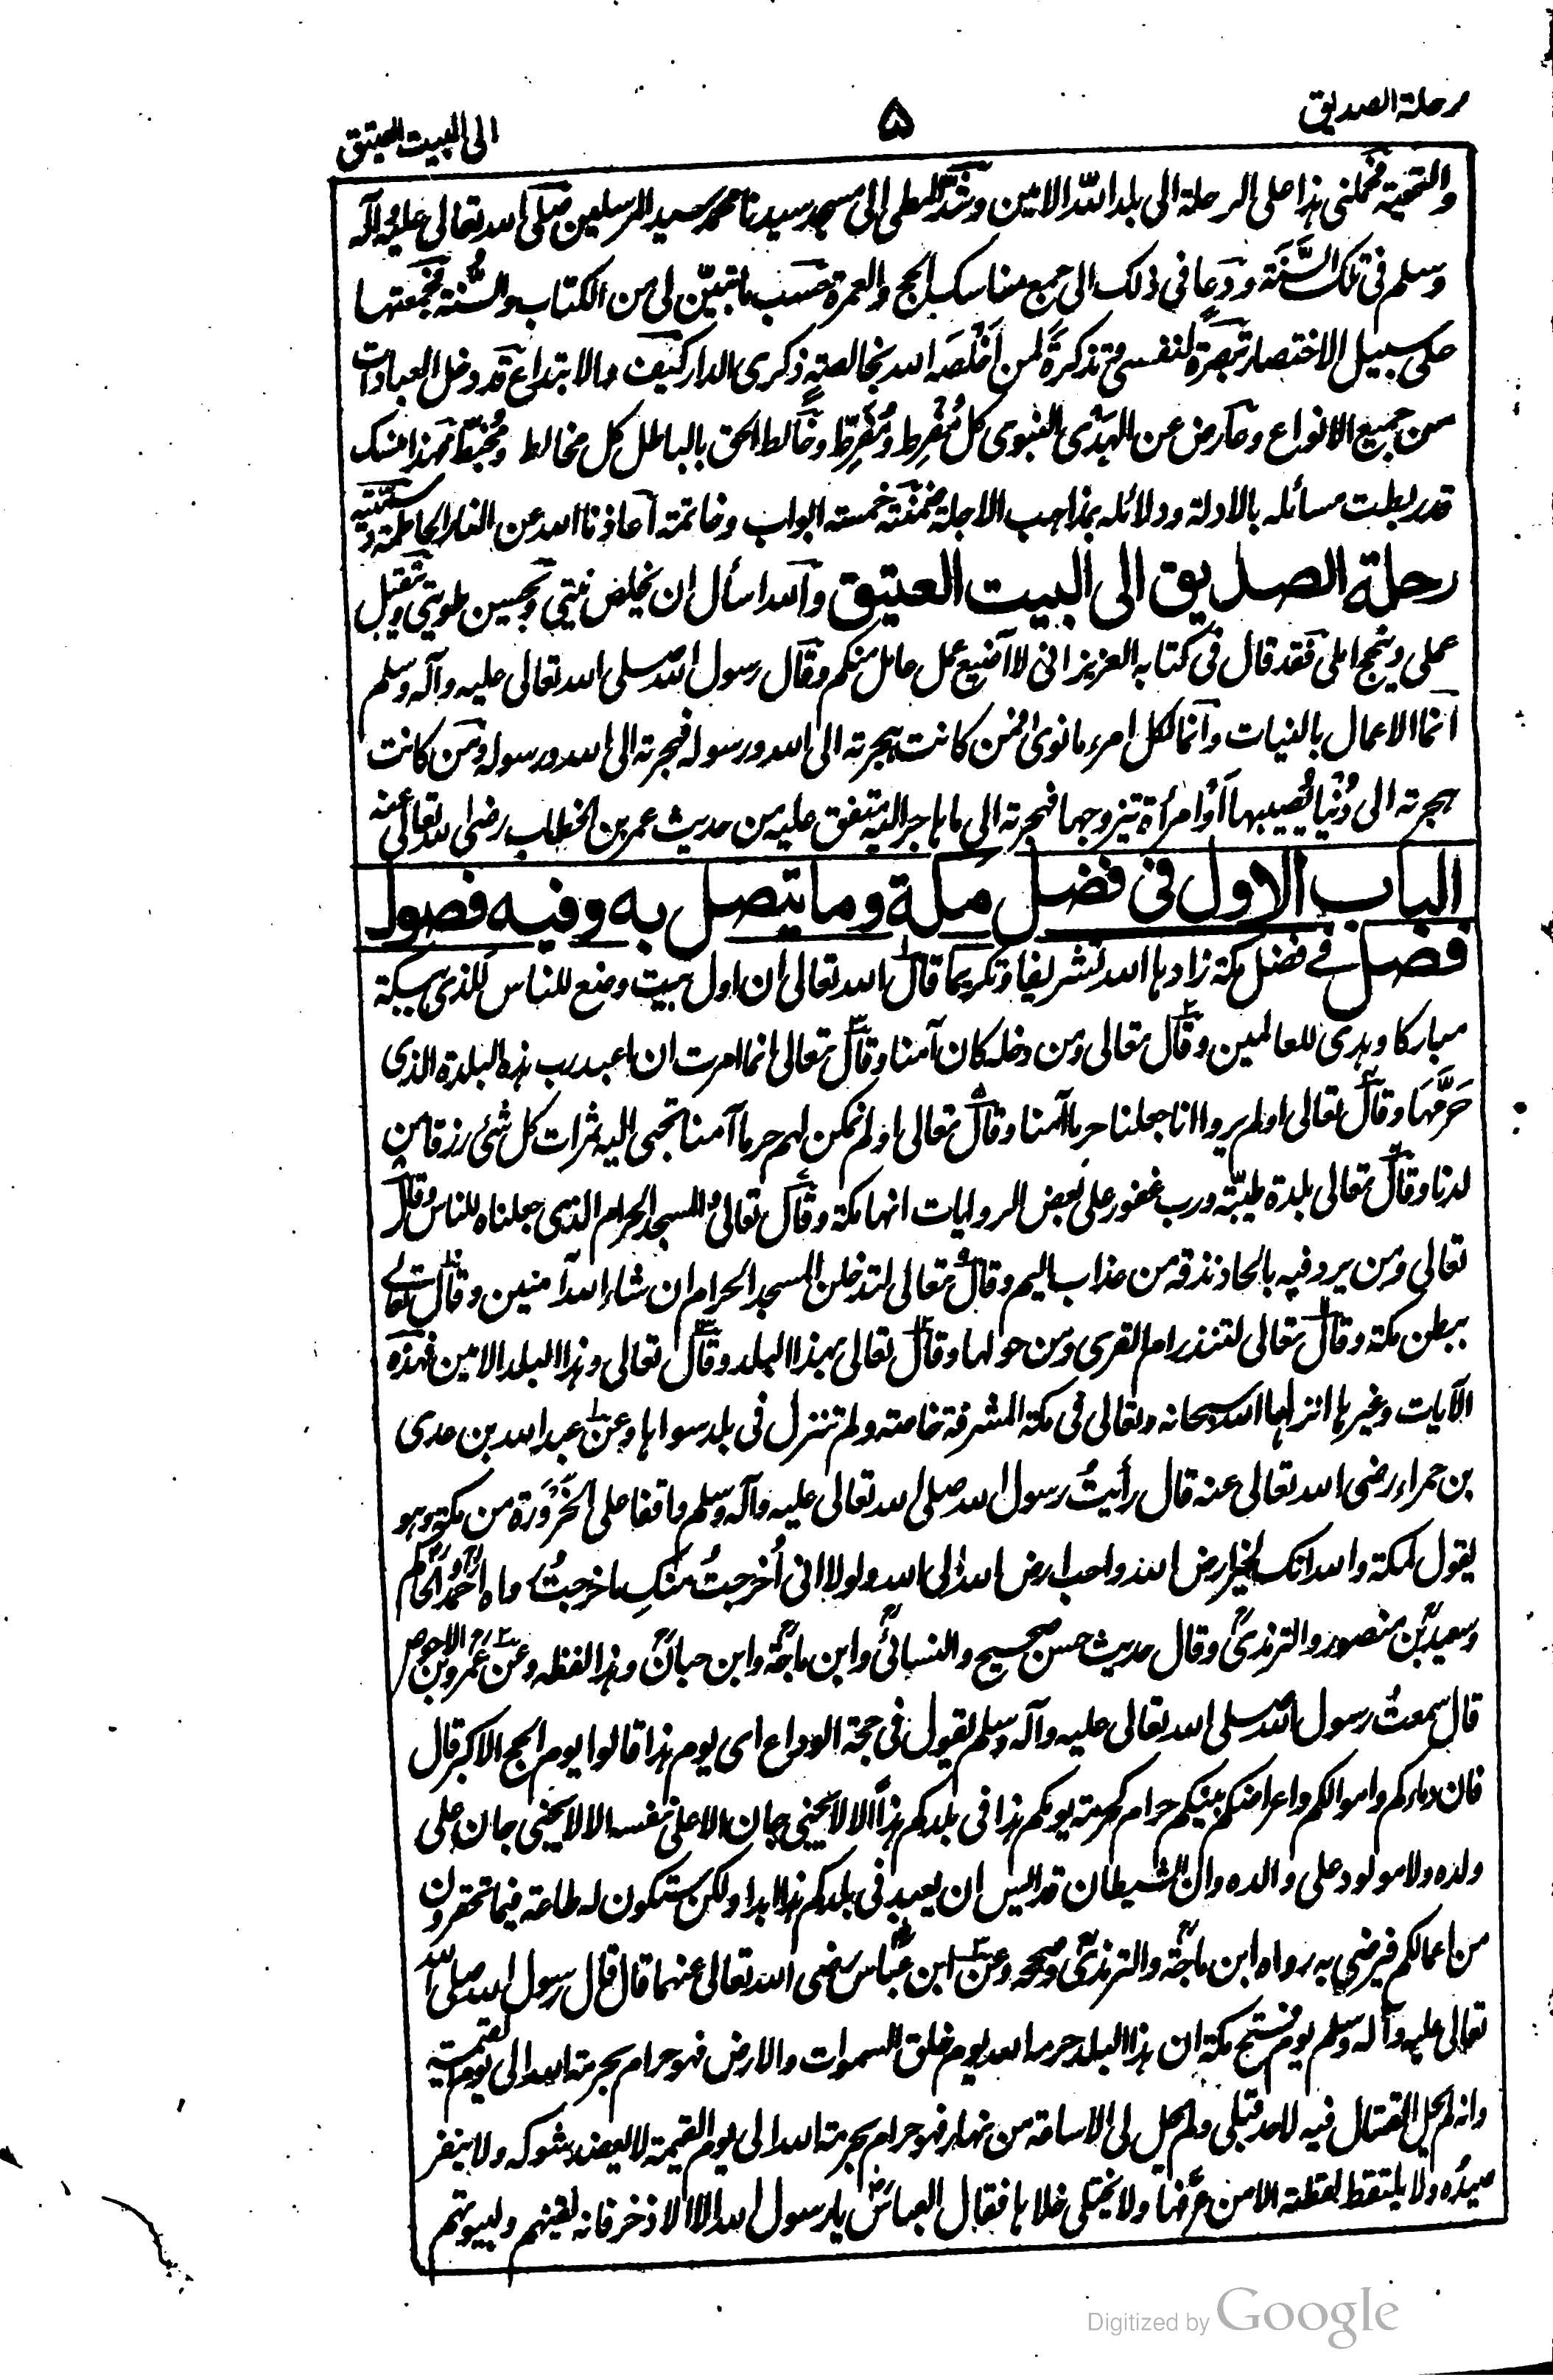 رحلة الصديق
۵
الى البيت العتيق
والتحية فحملنى هذا على الرحلة الى بلد الله الامين وشد المطى الى مسجد سيدنا محمد سيد المرسلين صلى الله تعالى عليه وآله
وسلم فى تلك السَّنَة ودعا فى ذلك الى جمع مناسك الحج والعمرة حسب ما تبيّن لى من الكتاب والسُّنة فجمعتها
على سبيل الاختصار تبصرة لنفسى وتذكرةً لمن اَخْلَصَه الله بخالصةٍ ذكرى الدار كيف والابتداع قد دخل العبادات
من جميع الانواع وعارض عن الهَدْى النبوى كل مُفْرِط ومُفَرِّط وخالط الحق بالباطل كل مخالط ومُخَبِّط فهذا منسك
قد ربطت مسائله بالادلة ودلائله بمذاهب الاجلة ضمنته خمسة ابواب وخاتمة اعاذنا الله عن النار الحاطمة وسميته
رحلة الصديق الى البيت العتيق والله اسأل ان يخلص نيتي وتحسين طويتي ويتقبل
عملى وينجح املى فقد قال فى كتابه العزيز انى لا اضيع عمل عامل منكم وقال رسول الله صلى الله تعالى عليه وآله وسلم
انما الاعمال بالنيات وانما لكل امرء ما نوى فمن كانت هجرته الى الله ورسوله فهجرته الى الله ورسوله ومن كانت
هجرته الى دُنْيا يصيبها اَوْ امرأة تيزوجها فهجرته الى ما هاجر اليه متفق عليه من حديث عمر بن الخطاب رضى الله تعالى عنه
الباب الاول فى فضل مكة وما يتصل به وفيه فصول
فصل في فضل مكة زادها الله تشريفا وتكريما قال الله تعالى ان اول بيت وضع للناس للذى ببكة
مباركا وهدى للعالمين وقال تعالى ومن دخله كان آمنا وقال تعالى انما امرت ان اعبد رب هذه البلدة الذى
حَرَّمَهَا وقال تعالى اولم يروا انا جعلنا حرما آمنا وقال تعالى اولم نمكن لهم حرما آمنا تجبى اليه ثمرات كل شئ رزقا من
لدنا وقال تعالى بلدة طيّبة ورب غفور على بعض الروايات انها مكة وقال تعالى والمسجد الحرام الذى جعلناه للناس وقال
تعالى ومن يرد فيه بالحاد نذقه من عذاب اليم وقال تعالى لتدخلن المسجد الحرام ان شاء الله آمنين وقال تعالے
ببطن مكة وقال تعالى لتنذر ام القرى ومن حولها وقال تعالى بهذا البلد وقال تعالى وهذا البلد الامين فهذه
الآيات وغيرها انزلها الله سبحانه وتعالى فى مكة المشرفة خاصة ولم تنزل فى بلد سواها وعن عبد الله بن عدى
بن حمراء رضى الله تعالى عنه قال رأيتُ رسول الله صلى الله تعالى عليه وآله وسلم واقفا على الحَزْوَرَة من مكة وهو
يقول لمكة والله انك لخير ارض الله واحب ارض الله الى الله ولولا انى اُخرجتُ منكِ ما خرجتُ رواه احمد والحاكم
وسعيد بن منصور والترمذى وقال حديث حسن صحيح والنسائى وابن ماجة وابن حبان وهذا لفظه وعن عمرو بن الاحوص
قال سمعتُ رسول الله صلى الله تعالى عليه وآله وسلم يقول فى حجة الوداع اى يوم هذا قالوا يوم الحج الاكبر قال
فان دماءكم واموالكم واعراضكم بينكم حرام كحرمة يومكم هذا فى بلدكم هذا الا لا يجنى جان الا على نفسه الا لا يجنى جان على
ولده ولا مولود على والده وان الشيطان قد ايس ان يعبد فى بلدكم هذا ابدا ولكن ستكون له طاعة فيما تحقرون
من اعمالكم فيرضى به رواه ابن ماجة والترمذى وصححه وعن ابن عباس رضى الله تعالى عنهما قال قال رسول الله صلى الله
تعالى عليه وآله وسلم يوم فتح مكة ان هذا البلد حرمه الله يوم خلق السموات والارض فهو حرام بحرمة الله الى يوم القيمة
وانه لم يحل القتال فيه لاحد قبلى ولم يحل لى الا ساعة من نهار فهو حرام بحرمة الله الى يوم القيمة لا يعضد شوكه ولا ينفر
صيدُه ولا يلتقط لقطته الا من عرّفها ولا يختلى خلاها فقال العباس يا رسول الله الا الاذخر فانه لقينهم ولبيوتهم
Digitized by Google